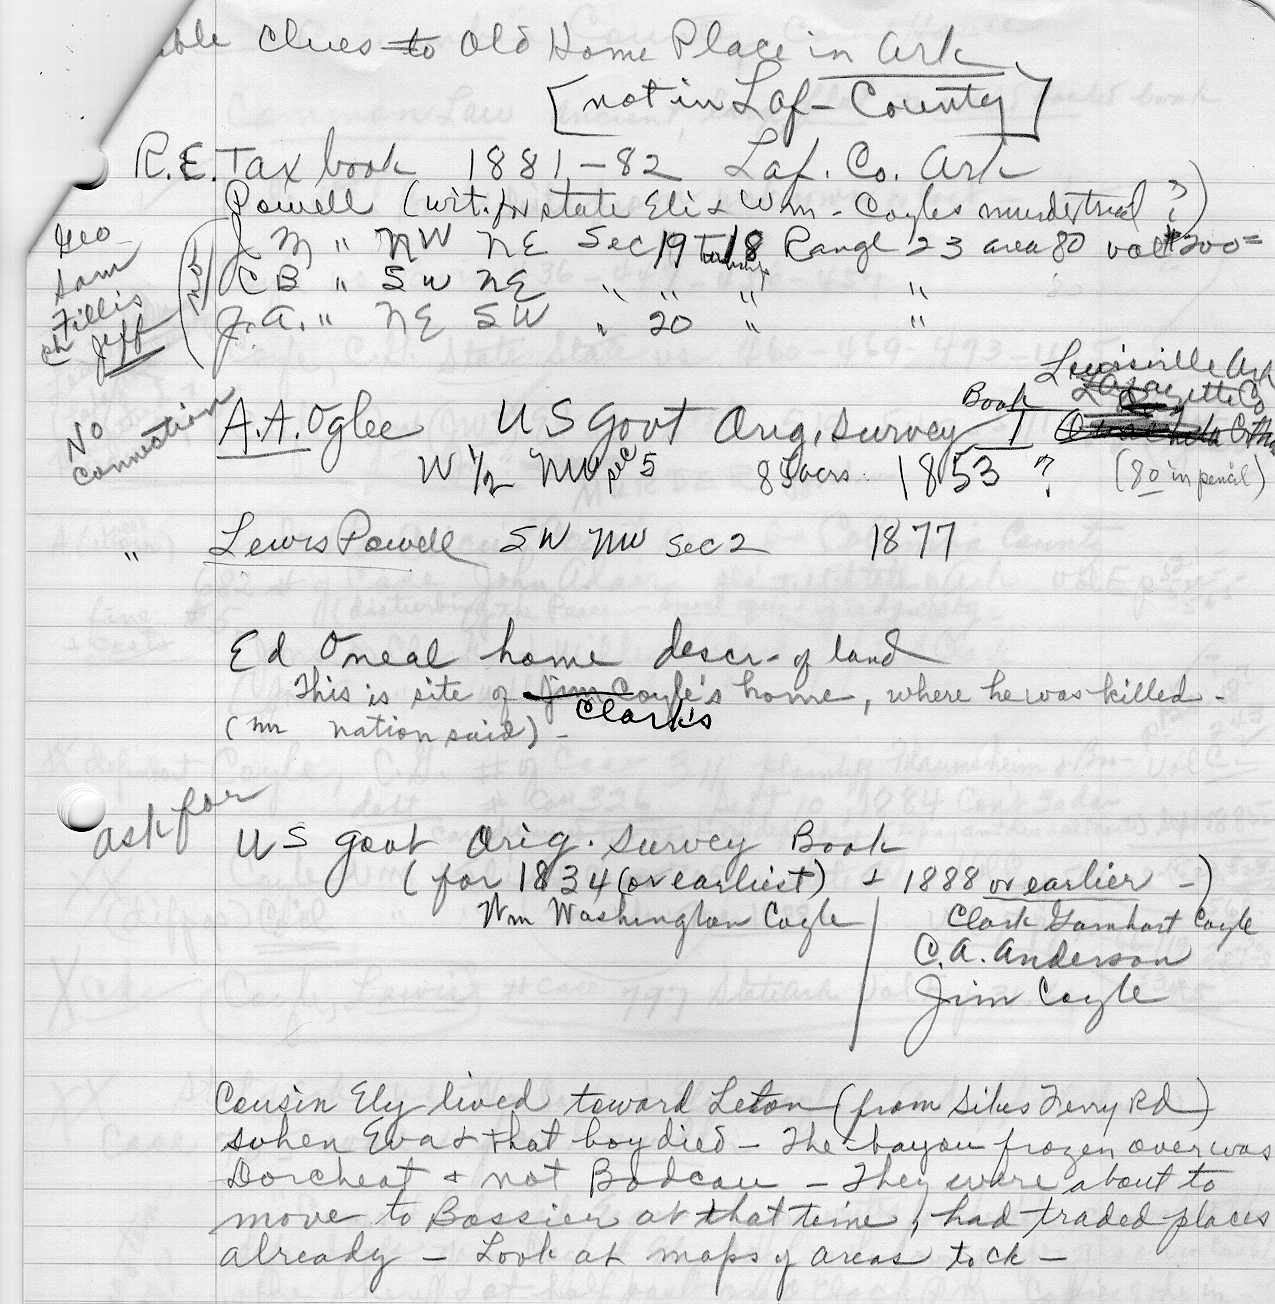 Clues to Old Home Place in Ark
[not in Laf- County]
R.E. Tax book 1881-82 Laf. Co. Ark
Powell (wit. for state Eli & Wm - Coyles murder trial ?)
Geo
Sam
Fillis
ch Jeff
J. M " NW NE Sec 19 Township 18 Range 23 area 80 val $200=
CB " SW NE " " " " 80
J. A. " NE SW " 20 " "
No connection
Lewisville Ark
Lafayette Co
A.A. Oglee US Govt Orig. Survey Book 1
W 1/2 NW Sec 5 80 acrs. 1853 ? (80 in pencil)
" Lewis Powell SW NW Sec 2 1877
Ed Oneal home descr- of land
This is site of Jim Coyle's home, where he was killed -
Clark's
(mr nation said) -
ask for
US govt Orig. Survey Book
(for 1834 (or earliest) & 1888 or earlier -)
Wm Washington Coyle
Clark Garnhart Coyle
C.A. Anderson
Jim Coyle
Cousin Ely lived toward Leton (from Sikes Ferry Rd)
when Eva & that boy died - The bayou frozen over was
Dorcheat & not Bodcau - They were about to
move to Bossier at that time, had traded places
already - Look at maps of areas to ck -